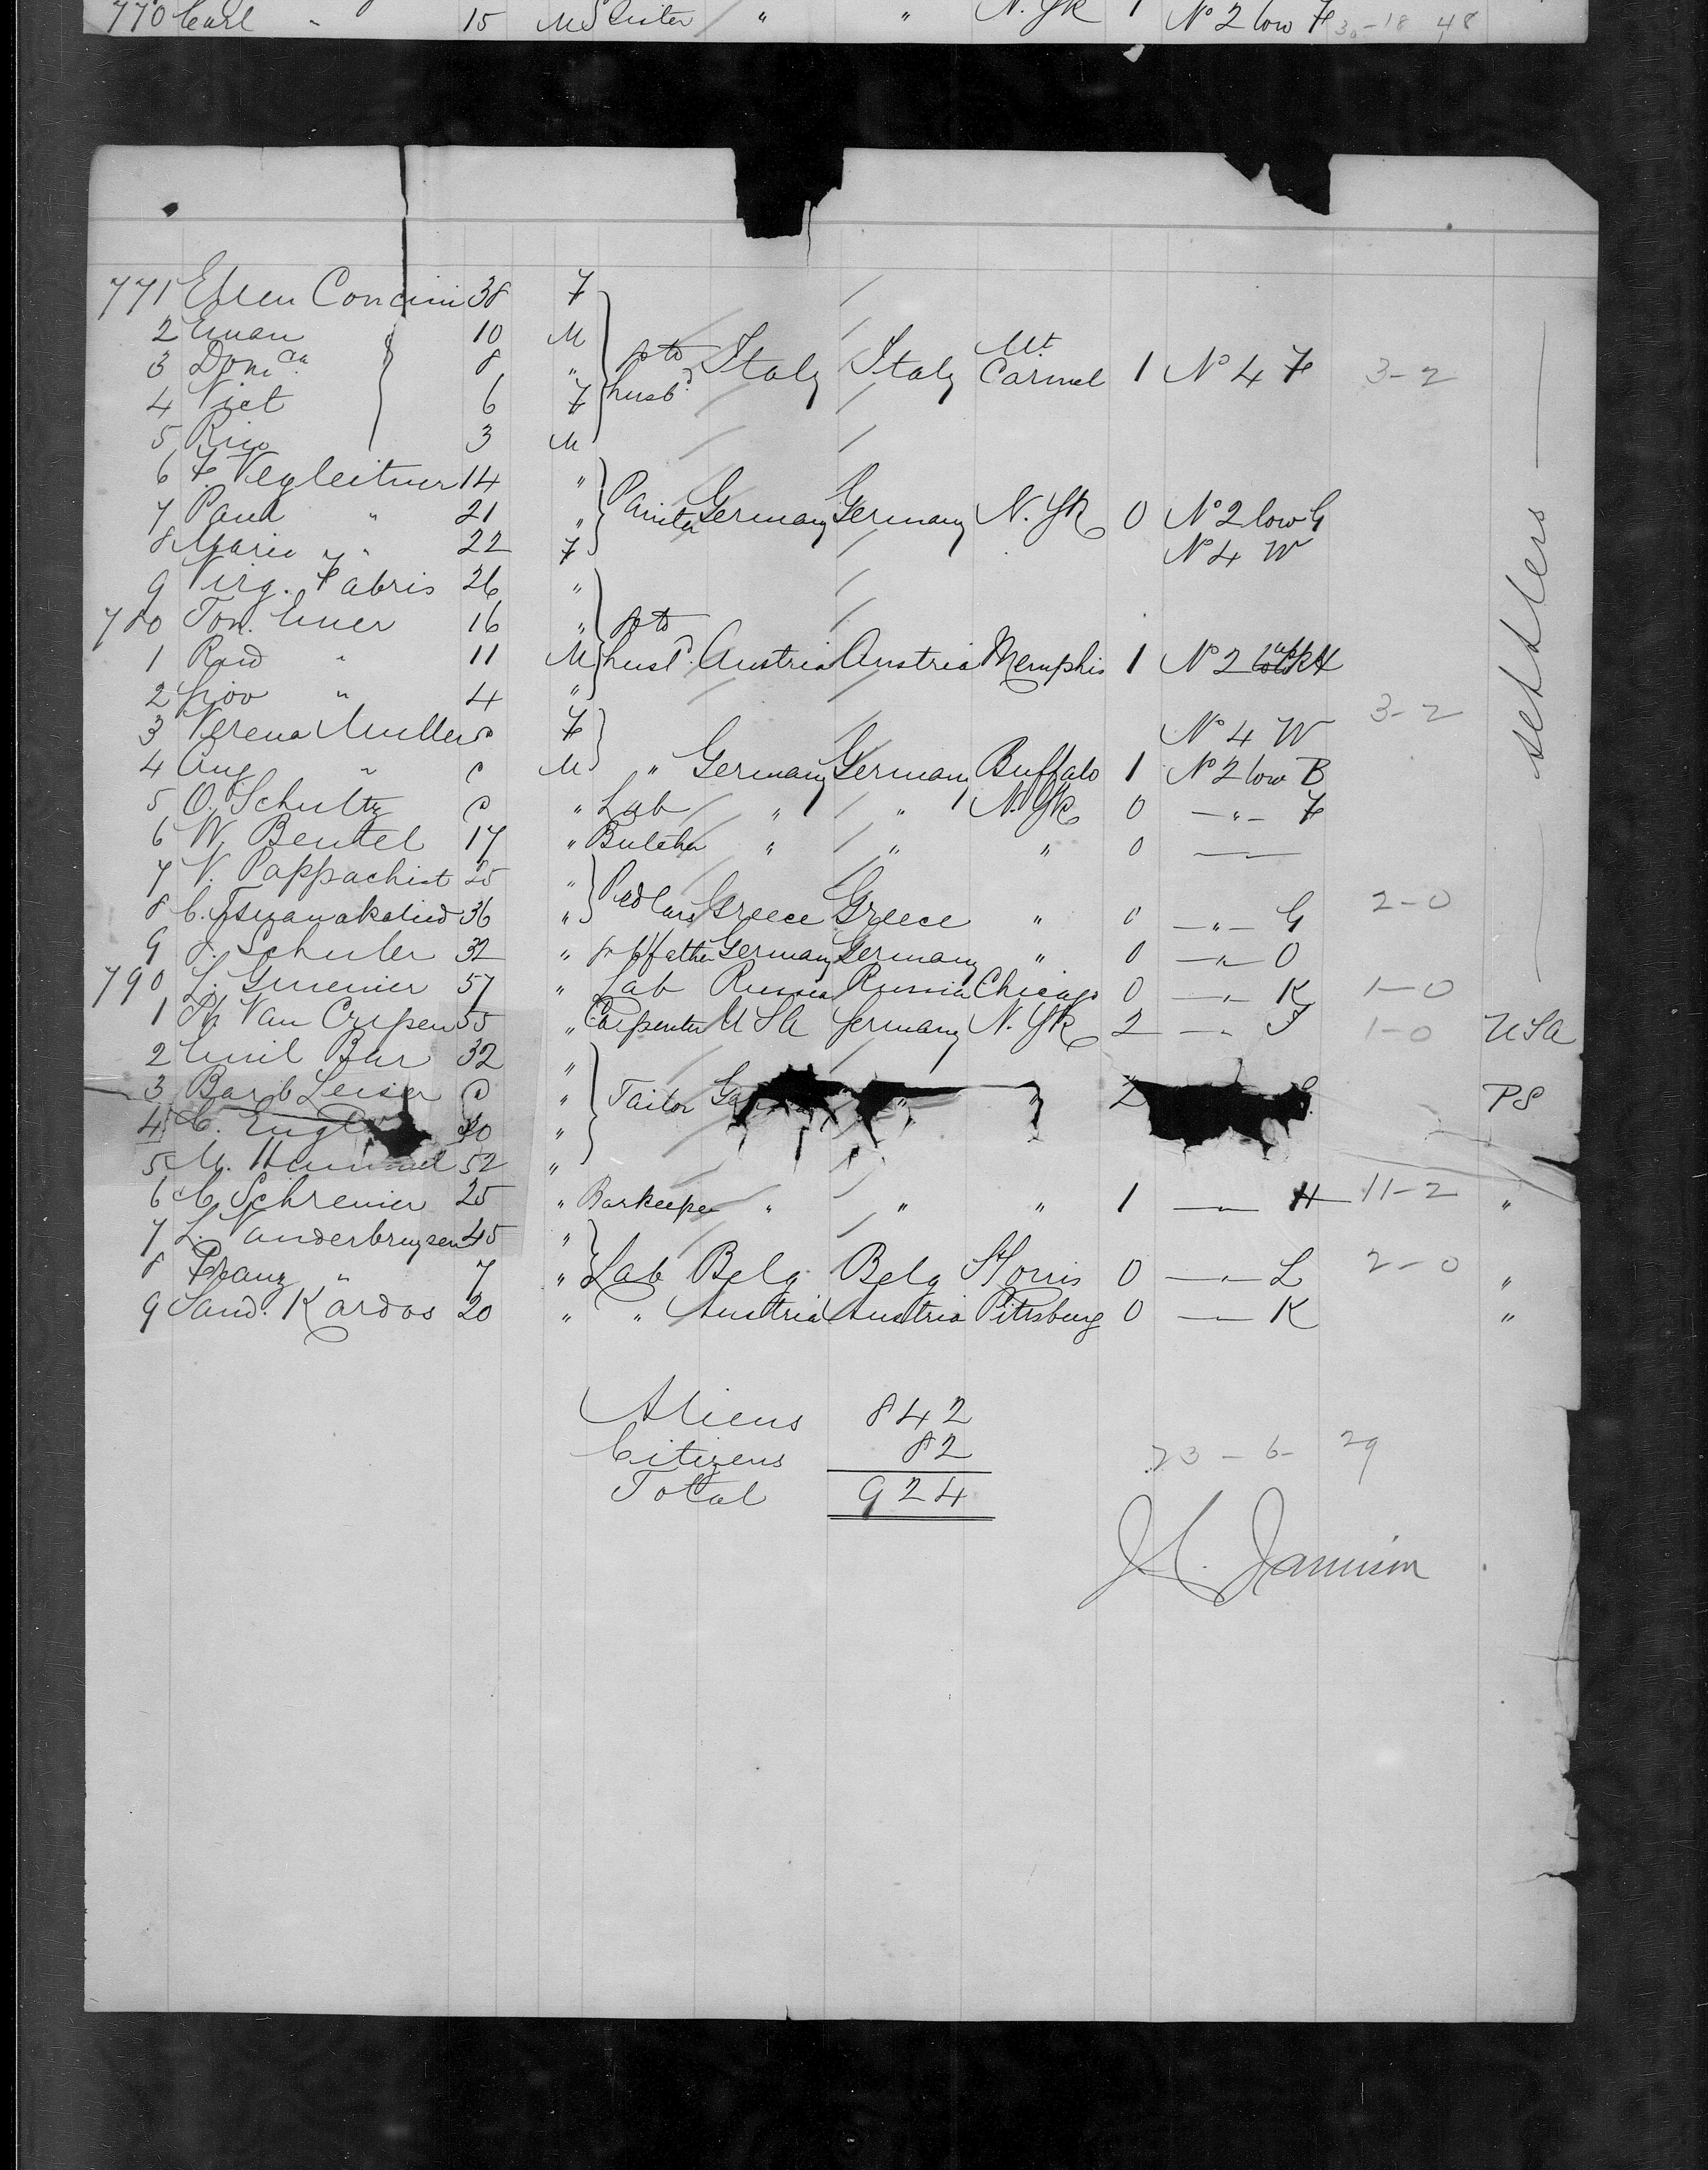 770 Carl " 15 M Sister " " N. Yk 1 No 2 low F 30-18 48
771 Ellen Concini 38 F
2 10 M
3 Dom ca 8 " to Italy Italy Mt Carmel 1 No 4 F 3-2
4 Vict 6 F husbd
5 3 M
6 F. Vegleitner 14 "
7 Paul " 21 " Painter Germany Germany N. Yk 0 No 2 low G
8 Marie " 22 F No 4 W
9 Virg. Fabris 26 "
780 Ton. 16 " to
1 " 11 M husbd. Austria Austria Memphis 1 No 2
2 Giov " 4 "
3 Verena Muller F No 4 W 3-2
4 Aug " M " Germany Germany Buffalo 1 No 2 low B
5 O. Schultz " Lab " " N. Yk 0 — " — F
6 W. Bentel 17 " Butcher " " " 0 ——
7 V. Pappachist 25 "
8 C. 36 " Pedlars Greece Greece " 0 — " — G 2-0
9 J. Schuler 32 " father Germany Germany " 0 — " — O
790 L. 57 " Lab Russia Russia Chicago 0 — " — K 1-0
1 Van Crypen 55 " Carpenter USA Germany N. Yk 2 — " 1-0 USA
2 Emil Bar 32 "
3 Barb Leiser " Tailor 2 PS
4 C. "
5 M. Hummel 52 "
6 C. Schreiner 25 " Barkeeper " " " 1 — " — H 11-2 "
7 L. Vanderbruysen 45 "
8 Franz " 7 " Lab Belg Belg 0 — " — L 2-0 "
9 Sand. Kardos 20 " " Austria Austria Pittsburg 0 — " — K "
— settlers —
Aliens 842
Citizens 82
Total 924
23 - 6 - 29
Jamison